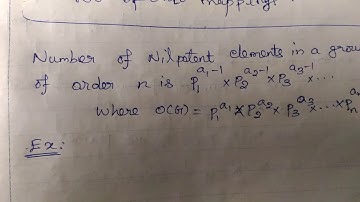 mappings.
Number of Nilpotent elements in a grou
of order n is p₁^{a₁-1} × p₂^{a₂-1} × p₃^{a₃-1} × ...
Where O(G) = p₁^{a₁} × p₂^{a₂} × p₃^{a₃} × ... × pₙ^{a
Ex: